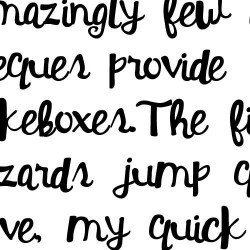 mazingly few
eques provide
keboxes.The fi
zards jump q
ve, my quick